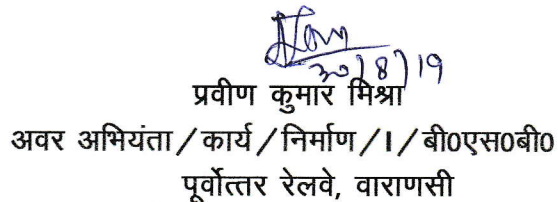 30/8/19
प्रवीण कुमार मिश्रा
अवर अभियंता/कार्य/निर्माण/I/बी0एस0बी0
पूर्वोत्तर रेलवे, वाराणसी